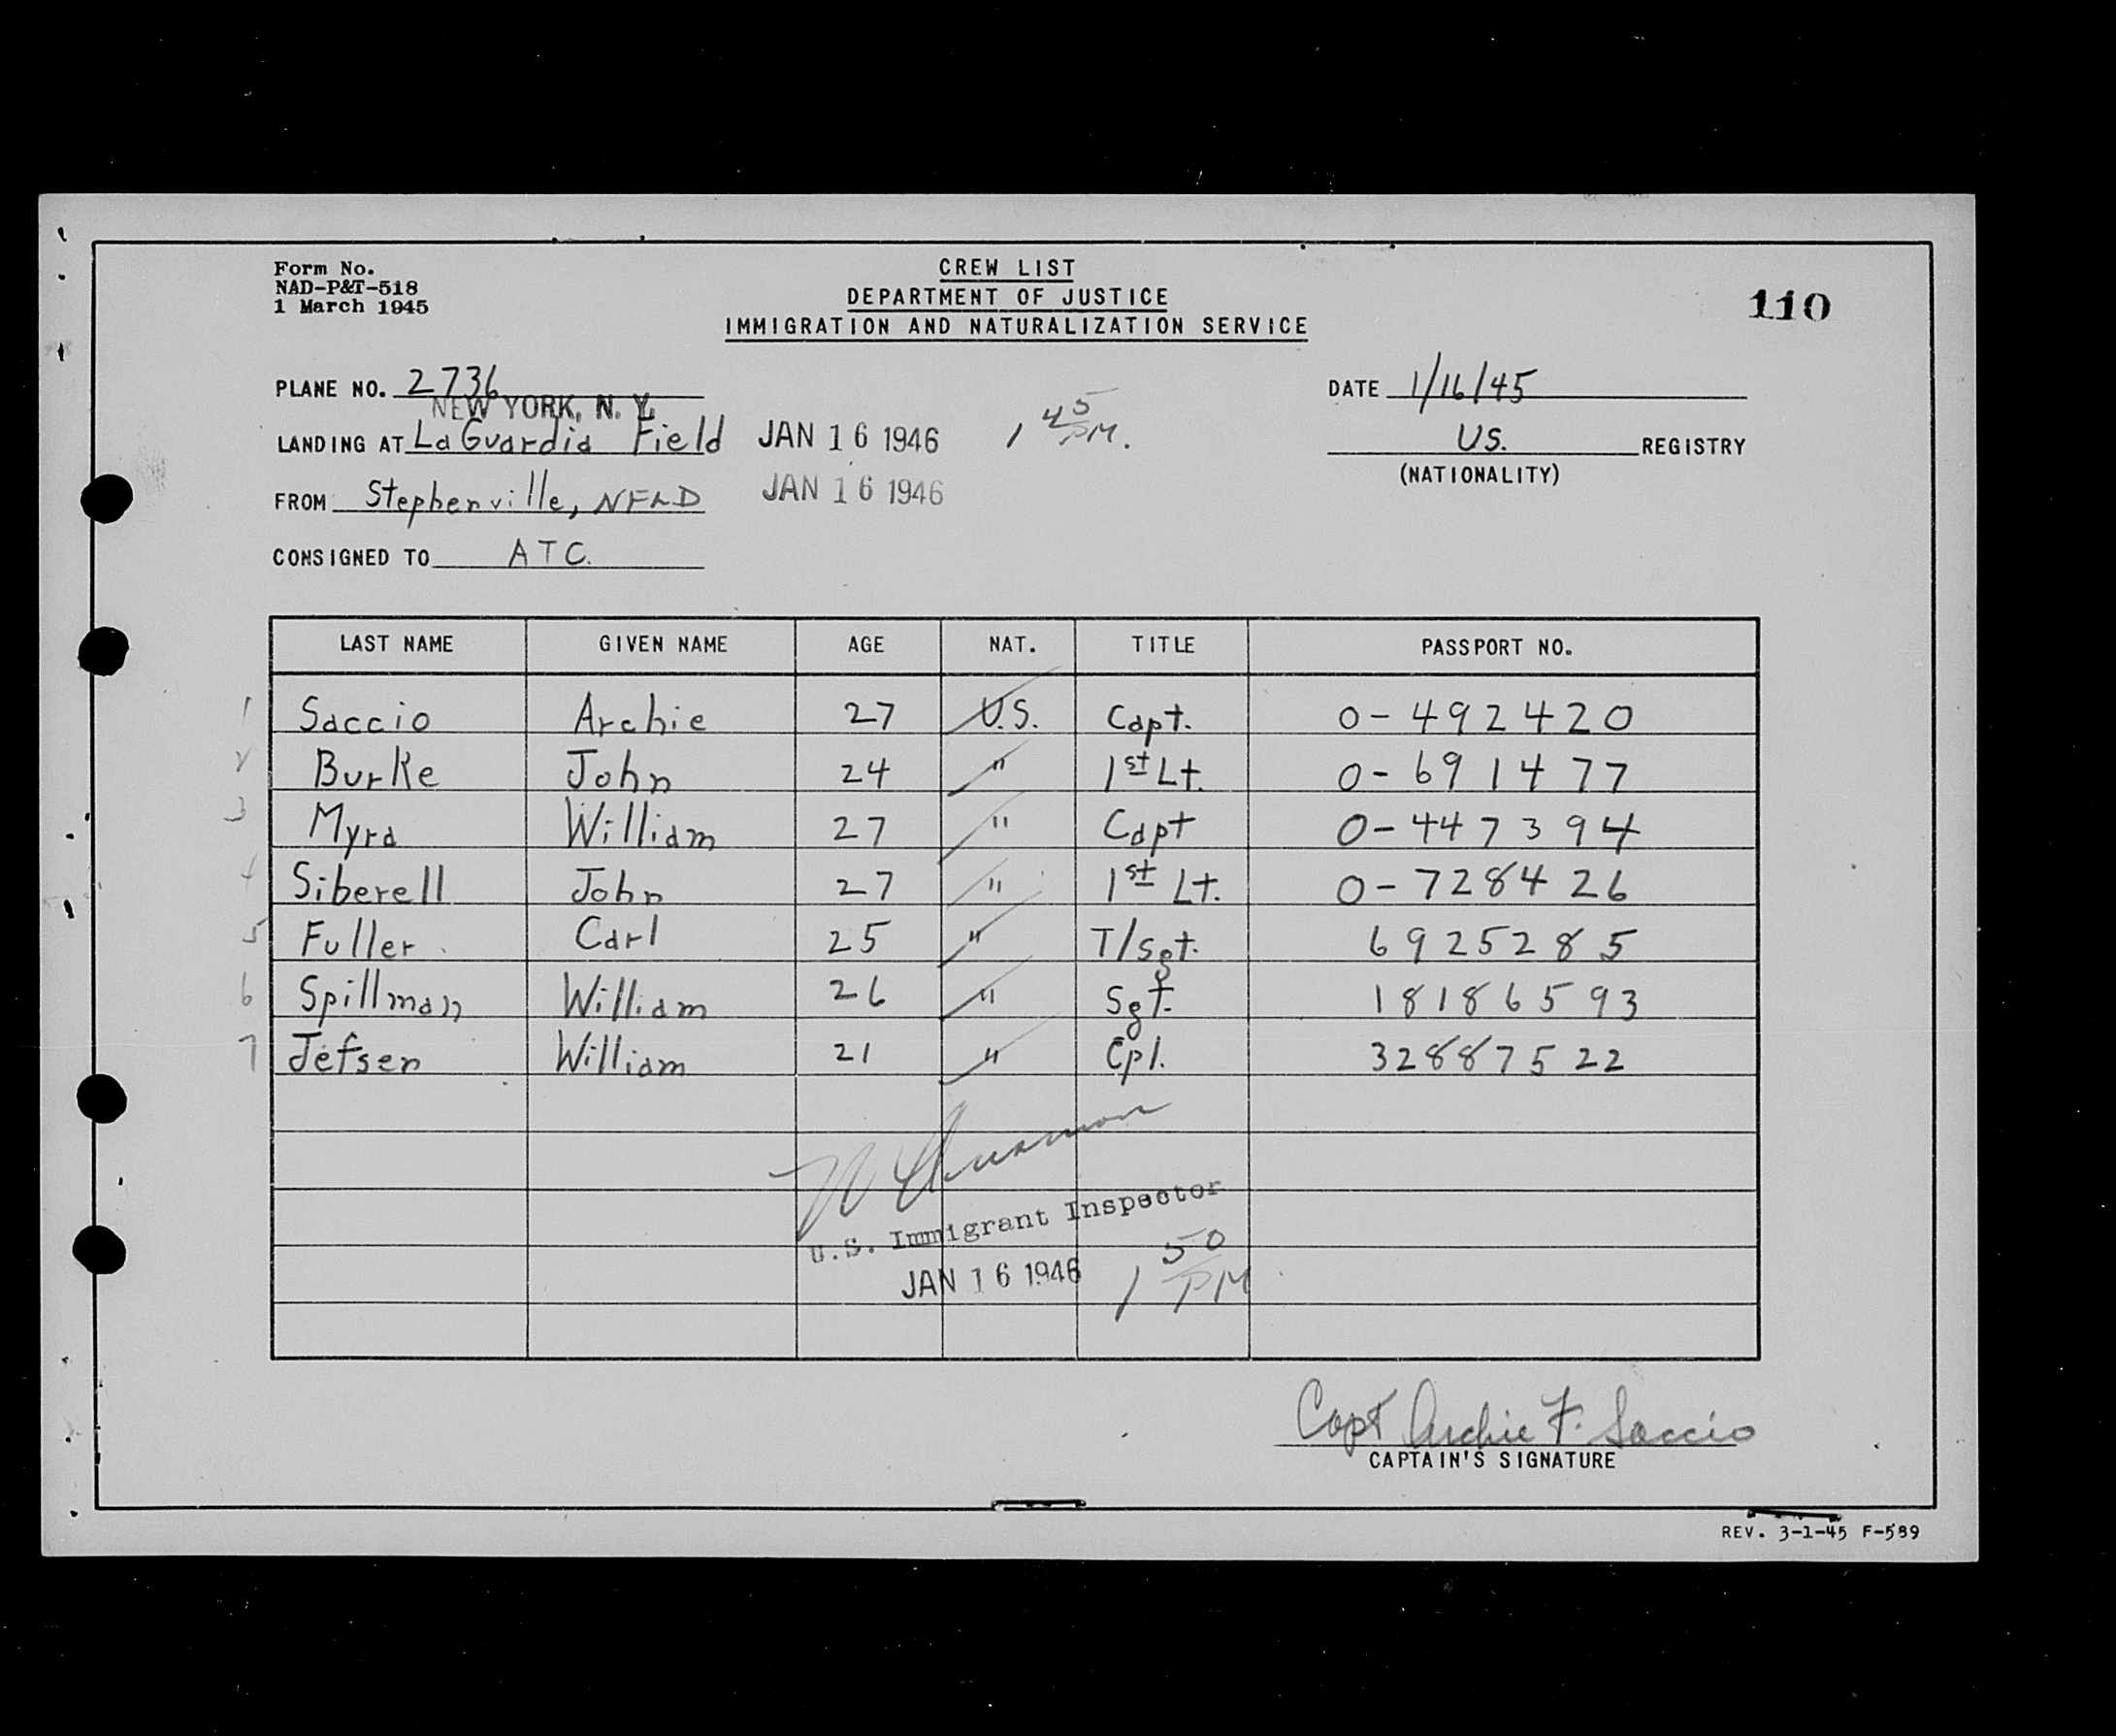 Form No.
NAD-P&T-518
1 March 1945
CREW LIST
DEPARTMENT OF JUSTICE
IMMIGRATION AND NATURALIZATION SERVICE
110
PLANE NO. 2736
NEW YORK, N. Y.
DATE 1/16/45
LANDING AT LaGuardia Field JAN 16 1946 1 45 PM.
U.S. REGISTRY
(NATIONALITY)
FROM Stephenville, NFLD JAN 16 1946
CONSIGNED TO ATC.
LAST NAME GIVEN NAME AGE NAT. TITLE PASSPORT NO.
1 Saccio Archie 27 U.S. Capt. O-492420
2 Burke John 24 " 1st Lt. O-691477
3 Myra William 27 " Capt O-447394
4 Siberell John 27 " 1st Lt. O-728426
5 Fuller Carl 25 " T/Sgt. 6925285
6 Spillman William 26 " Sgt. 18186593
7 Jefsen William 21 " Cpl. 32887522
U.S. Immigrant Inspector
JAN 16 1946 1 50 PM
Capt Archie F. Saccio
CAPTAIN'S SIGNATURE
REV. 3-1-45 F-589